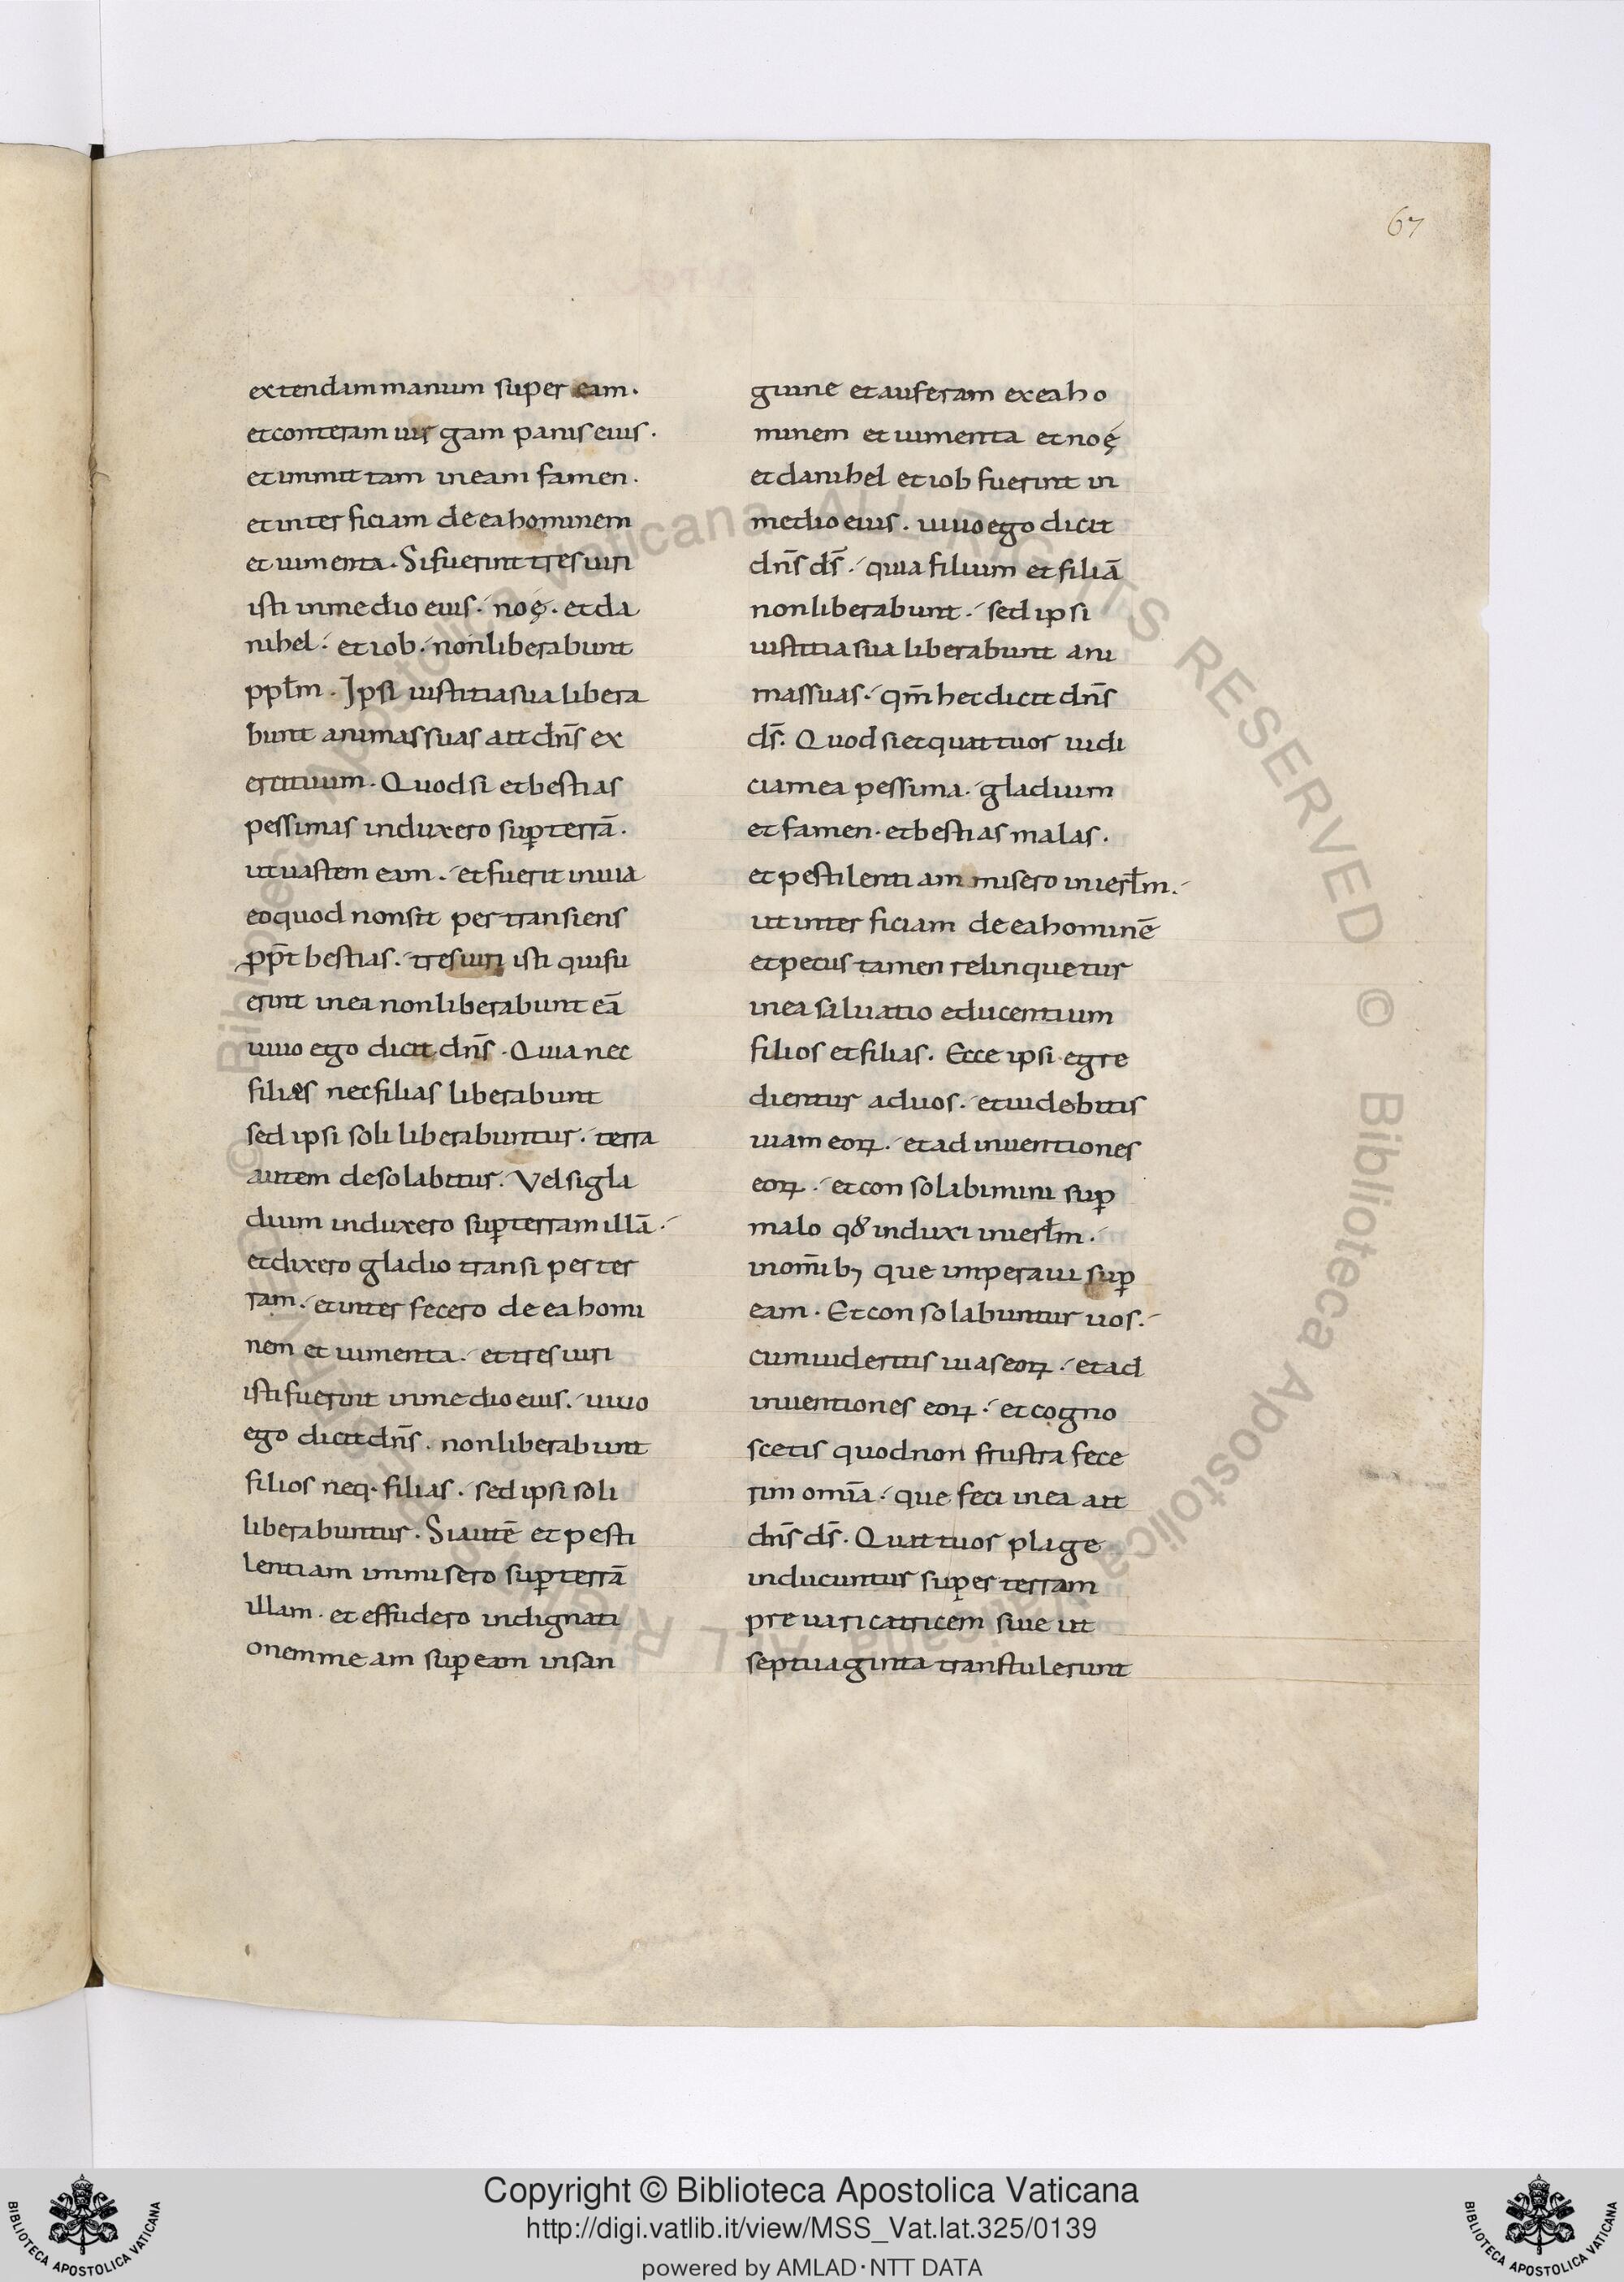 67
extendam manum super eam.
et conteram uirgam panis eius.
et inmittam in eam famen.
et interficiam de ea hominem
et iumenta. Si fuerint tres uiri
isti in medio eius. noę. et da
nihel. et iob. non liberabunt
ppłm. Ipsi iustitia sua libera
bunt animas suas ait dn̄s ex
ercituum. Quod si et bestias
pessimas induxero sup̱ terrā.
ut uastem eam. et fuerit inuia
eo quod non sit pertransiens
pp̄t bestias. tres uiri isti qui fu
erint in ea non liberabunt eā
uiuo ego dicit dn̄s. Quia nec
filios nec filias liberabunt
sed ipsi soli liberabuntur. terra
autem desolabitur. Vel si gla
dium induxero sup̱ terram illā.
et dixero gladio transi per ter
ram. et interfecero de ea homi
nem et iumenta. et tres uiri
isti fuerint in medio eius. uiuo
ego dicit dn̄s. non liberabunt
filios neq. filias. sed ipsi soli
liberabuntur. Si autē et pesti
lentiam immisero sup̱ terrā
illam. et effudero indignati
onem meam sup̱ eam in san
guine et auferam ex ea ho
minem et iumenta et noę
et danihel et iob fuerint in
medio eius. uiuo ego dicit
dn̄s ds̄. quia filium et filiā
non liberabunt. sed ipsi
iustitia sua liberabunt ani
mas suas. qm̄ hec dicit dn̄s
ds̄. Quod si et quattuor iudi
cia mea pessima. gladium
et famen. et bestias malas.
et pestilentiam misero in ierłm.
ut interficiam de ea hominē
et pecus tamen relinquetur
in ea saluatio educentium
filios et filias. Ecce ipsi egre
dientur ad uos. et uidebitis
uiam eoꝝ. et adinuentiones
eoꝝ. et consolabimini sup̱
malo qđ induxi in ierłm.
in om̄ibꝫ que imperaui sup̱
eam. Et consolabuntur uos.
cum uideritis uias eoꝝ. et ad
inuentiones eoꝝ. et cogno
scetis quod non frustra fece
rim omīa. que feci in ea ait
dn̄s ds̄. Quattuor plage
inducuntur super terram
preuaricatricem siue ut
septuaginta transtulerunt
© Biblioteca Apostolica Vaticana ALL RIGHTS RESERVED © Biblioteca Apostolica Vaticana ALL RIGHTS RESERVED
Copyright © Biblioteca Apostolica Vaticana
http://digi.vatlib.it/view/MSS_Vat.lat.325/0139
powered by AMLAD·NTT DATA
BIBLIOTECA APOSTOLICA VATICANA
BIBLIOTECA APOSTOLICA VATICANA